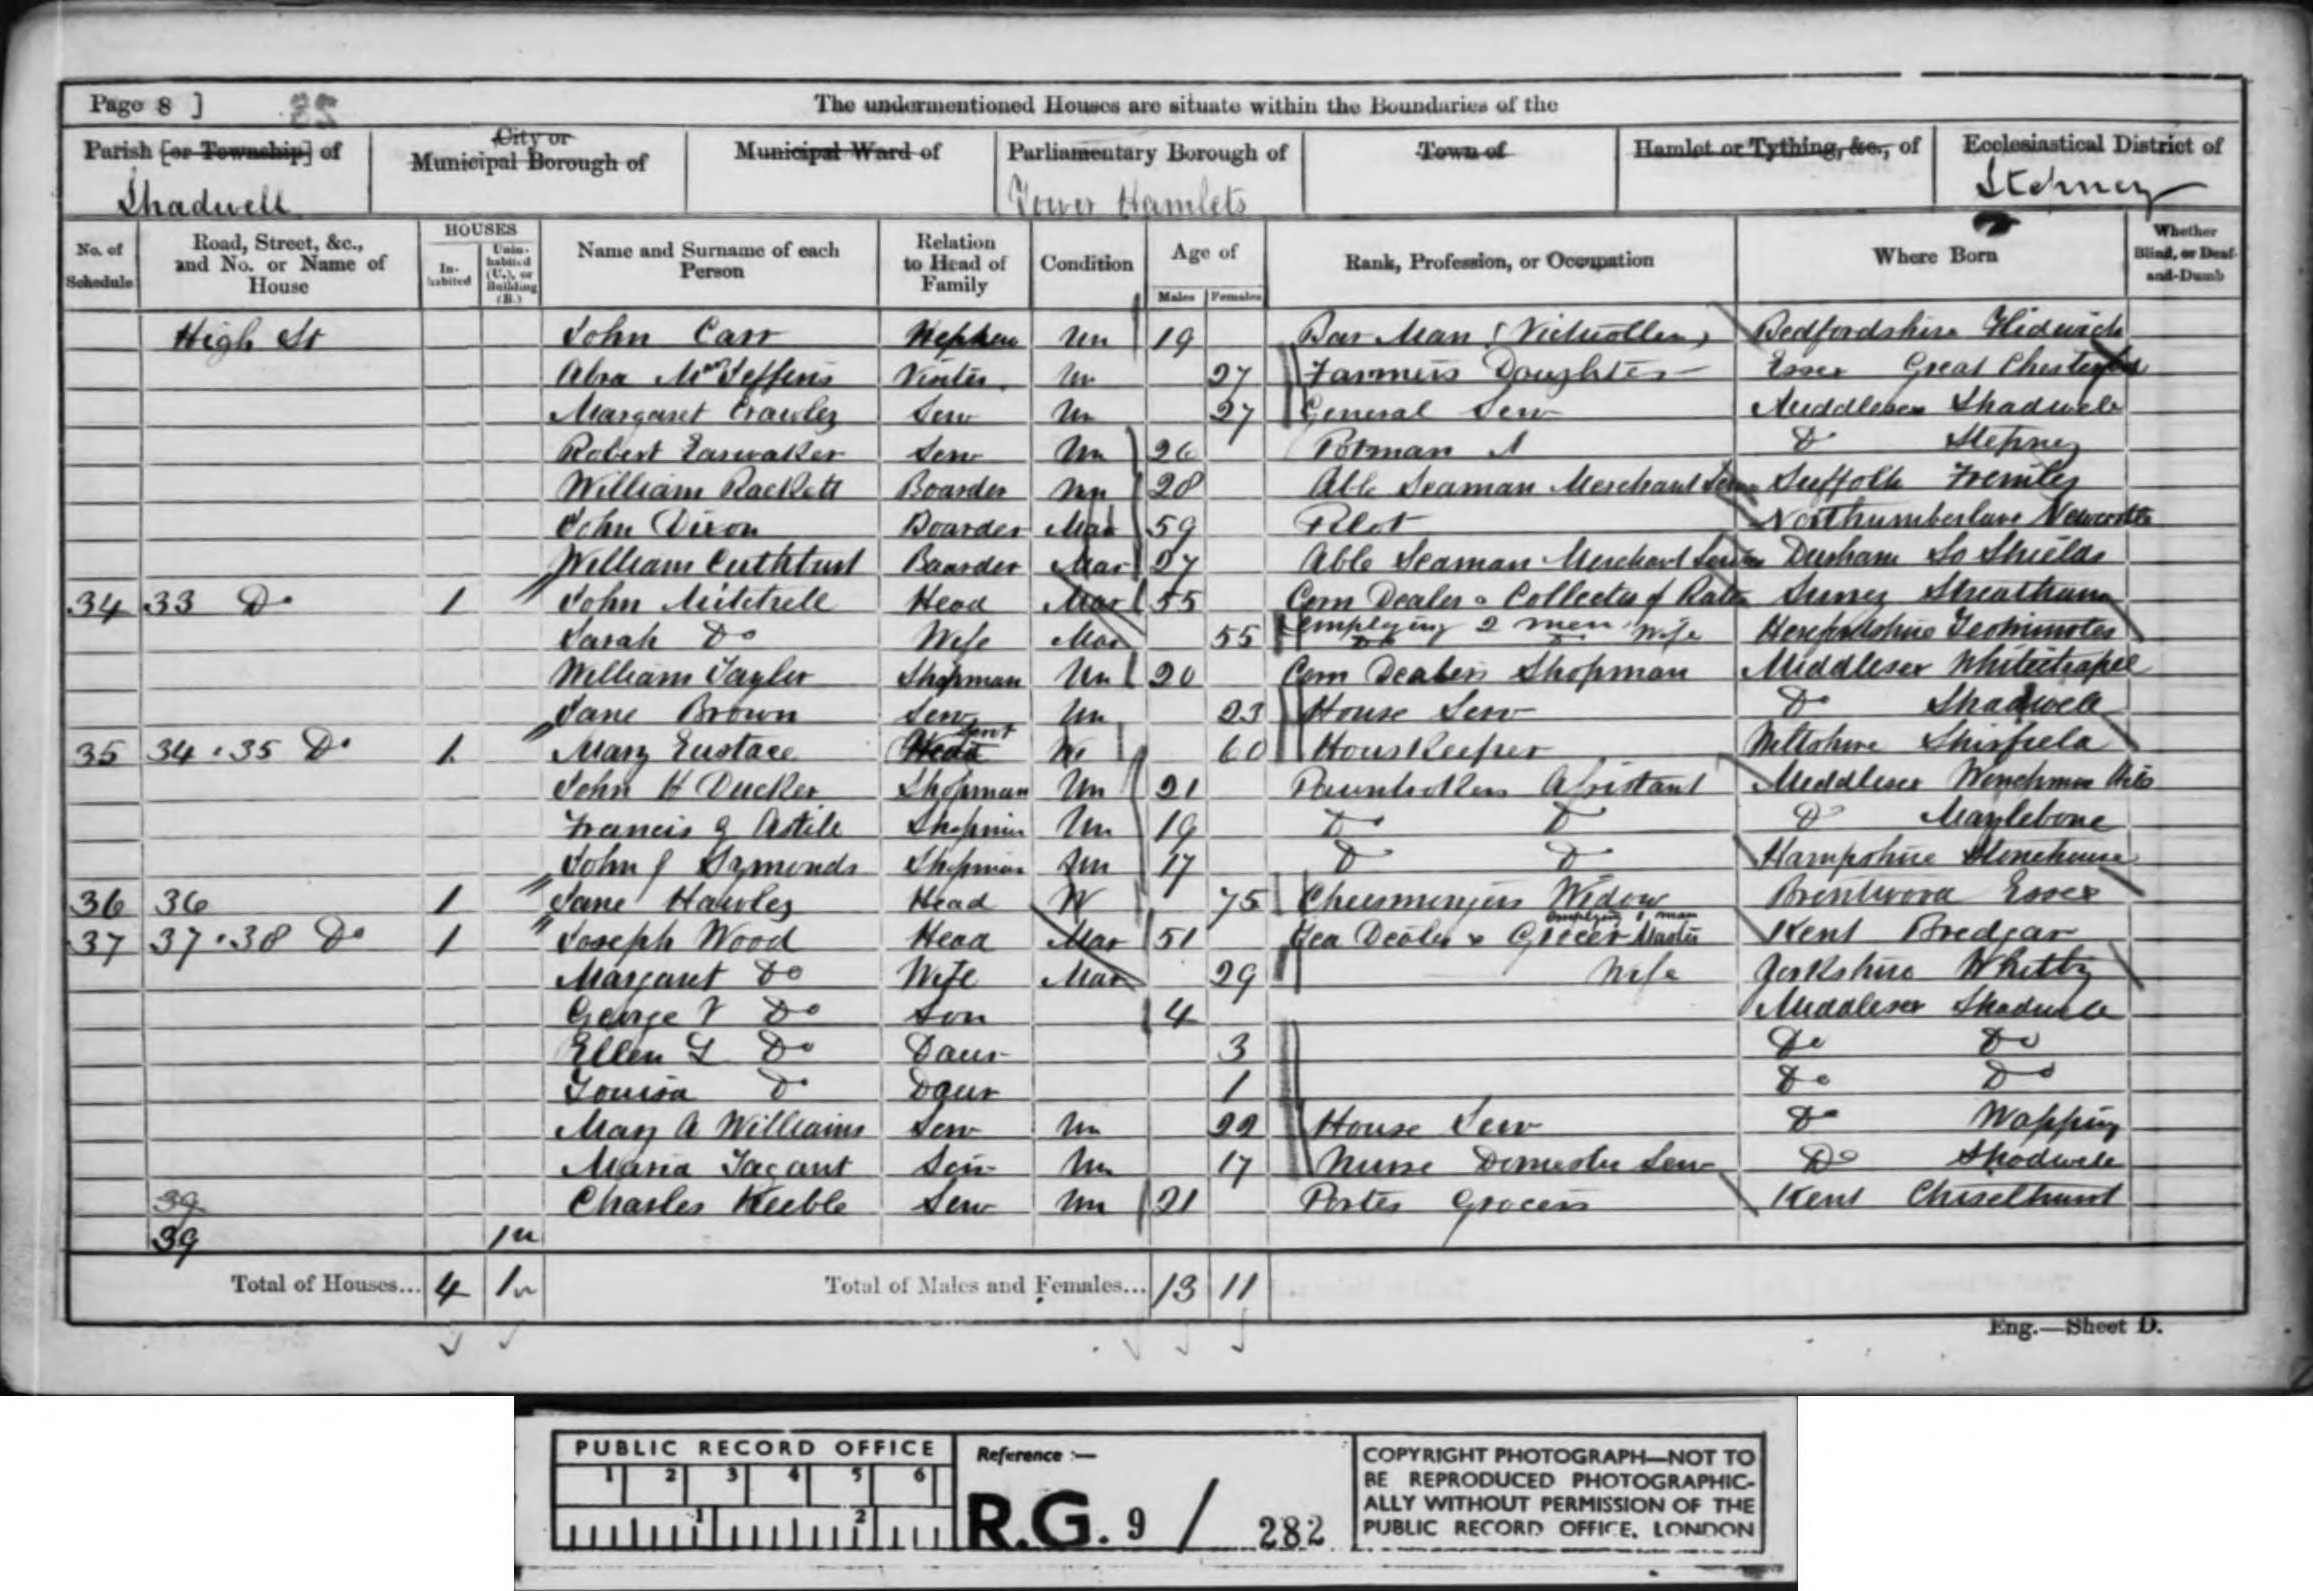 Page 8 ] 85 The undermentioned Houses are situate within the Boundaries of the
Parish [or Township] of City or Municipal Borough of Municipal Ward of Parliamentary Borough of Town of Hamlet or Tything, &c., of Ecclesiastical District of
Shadwell Tower Hamlets Stepney
No. of Schedule Road, Street, &c., and No. or Name of House HOUSES In-habited Unin-habited (U.), or Building (B.) Name and Surname of each Person Relation to Head of Family Condition Age of Males Females Rank, Profession, or Occupation Where Born Whether Blind, or Deaf-and-Dumb
High St John Carr Nephew Un 19 Bar Man Bedfordshire
Abra Mary Jeffens Visitor Un 27 Farmers Daughter Essex Great Chesterford
Margaret Crawley Serv Un 27 General Serv Middlesex Shadwell
Robert Earwaker Serv Un 26 Potman Do Stepney
William Rackett Boarder Un 28 Able Seaman Merchant Suffolk
John Dixon Boarder Mar 59 Pilot Northumberland Newcastle
William Cuthburt Boarder Mar 27 Able Seaman Merchant Service Durham So Shields
34 33 Do 1 John Mitchell Head Mar 55 Corn Dealer & Collector of Rates Surrey Streatham
employing 2 men
Sarah Do Wife Mar 55 Do Wife Herefordshire
William Taylor Shopman Un 20 Corn Dealers Shopman Middlesex Whitechapel
Jane Brown Serv Un 23 House Serv Do Shadwell
35 34 & 35 Do 1 Mary Eustace Head Servt W 60 Houskeeper Wiltshire
John H Ducker Shopman Un 21 Pawnbrokers Assistant Middlesex Winchmore Hill
Francis G Astile Shopman Un 19 Do Do Do Marylebone
John J Symonds Shopman Un 17 Do Do Hampshire Stonehouse
36 36 1 Jane Hawley Head W 75 Cheesmongers Widow Brentwood Essex
employing 1 man
37 37 & 38 Do 1 Joseph Wood Head Mar 51 Tea Dealer & Grocer Master Kent Bredgar
Margaret Do Wife Mar 29 Wife Yorkshire Whitby
George V Do Son 4 Middlesex Shadwell
Ellen L Do Daur 3 Do Do
Louisa Do Daur 1 Do Do
Mary A Williams Serv Un 22 House Serv Do Wapping
Maria Tagant Serv Un 17 Nurse Domestic Serv Do Shadwell
39 Charles Keeble Serv Un 21 Porter Grocers Kent Chiselhurst
39 1u
Total of Houses... 4 1u Total of Males and Females... 13 11
Eng.—Sheet D.
PUBLIC RECORD OFFICE
1 2 3 4 5 6
1 2
Reference :—
R.G. 9 / 282
COPYRIGHT PHOTOGRAPH—NOT TO
BE REPRODUCED PHOTOGRAPHIC-
ALLY WITHOUT PERMISSION OF THE
PUBLIC RECORD OFFICE, LONDON